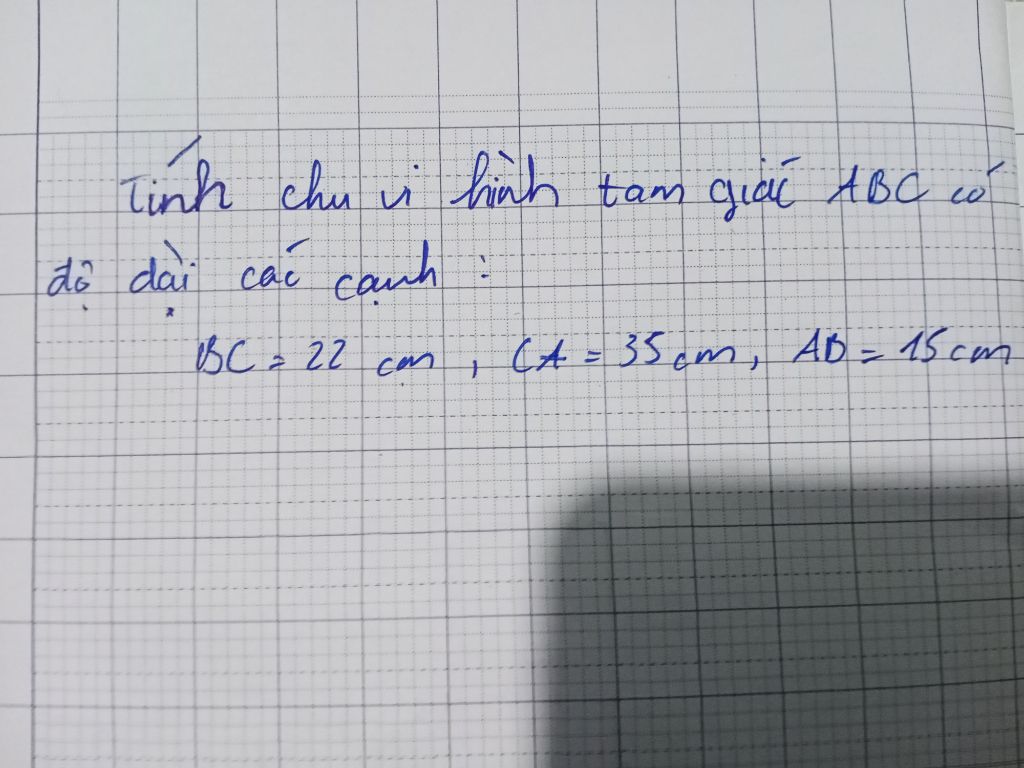 Tính chu vi hình tam giác ABC có
độ dài các cạnh :
BC = 22 cm , CA = 35 cm, AB = 15 cm